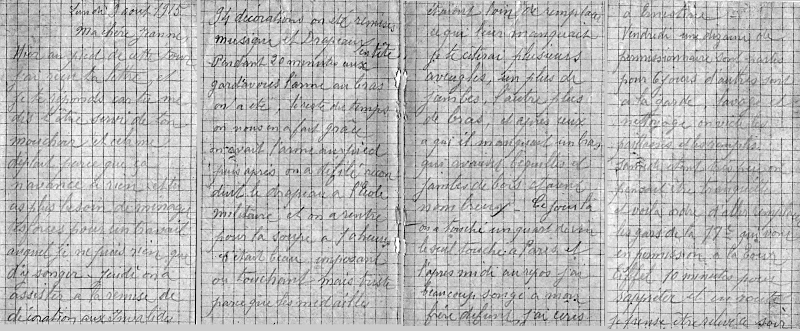 Lundi 9 aout 1915
Ma chère Jeanne,
Hier au pied de cette tour
j'ai reçu ta lettre et
je te reponds car tu me
dis t'etre servie de ton
mouchoir et cela me
deplait parce que ça
n'avance a rien et tu
as plus besoin de menager
tes forces pour un travail
auquel je ne puis rien que
d'y songer. Jeudi on a
assister a la remise de
decoration aux Invalides
94 décorations on été remises
musique et Drapeaux en tête
Pendant 20 minutes aux
gard'avous l'arme au bras
on a été, le reste du temps
on nous en a fait grace
on avait l'arme au pied
puis après on a défilé recon
duit le drapeau a l'école
militaire et on a rentré
pour la soupe a heures
c'etait beau, imposant
ou touchant mais triste
parce que les médaillés
etaient loin de remplacer
ce qui leur manquait
Je te citerai plusieurs
aveugles, un plus de
jambes, l'autre plus
de bras, et après ceux
a qui il manquaient un bras
qui avaient béquilles et
jambes de bois etaient
nombreux. Ce jour la
on a touché un quart de vin
le seul touché a Paris et
l'apres midi au repos j'ai
beaucoup songé a mon
frère defunt, j'ai ecris
a Ernestine
Vendredi une dizaine de
permissionnaire sont partis
pour 6 jours d'autres sont
a la garde lavage et
nettoyage on vide les
paillasses et les remplis
Samedi etant
pensait etre tranquille
et voila ordre d'aller remplacer
les gars de la 17e qui vont
en permission a la tour
Eiffel 10 minutes pour
s'appreter et en route
je pense etre relevé ce soir